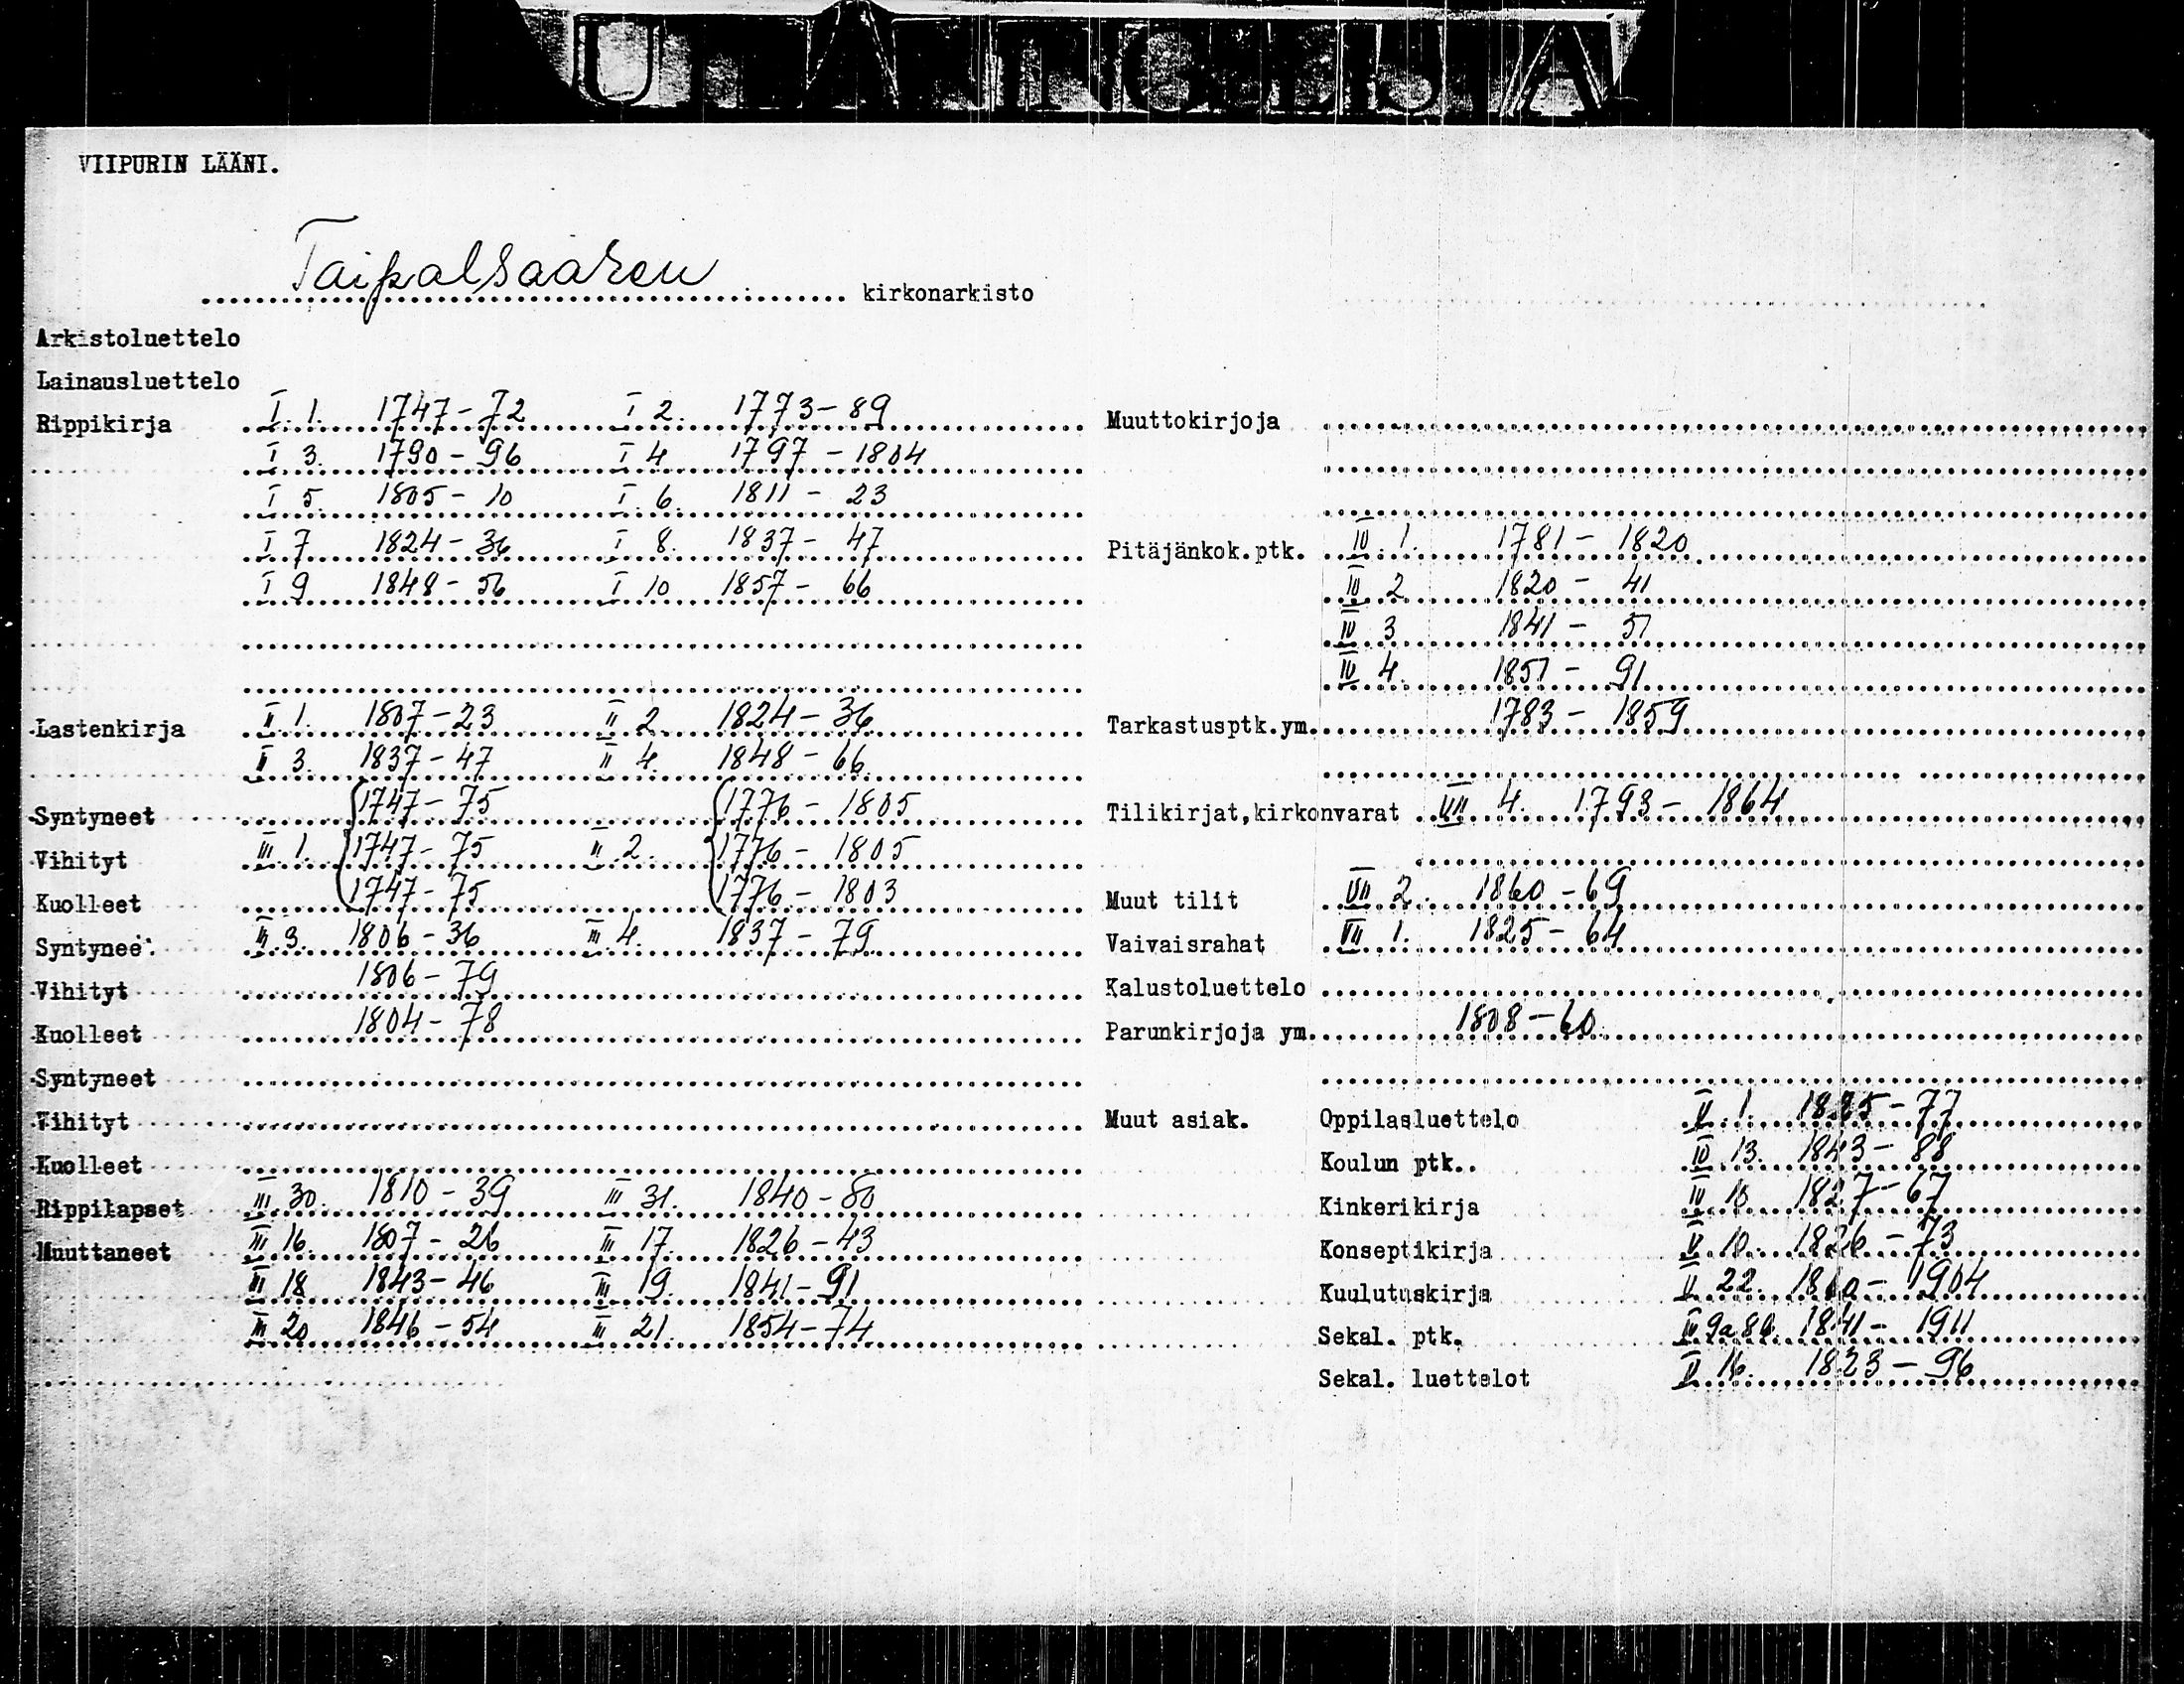 VIIPURIN LÄÄNI.
Taipalsaaren kirkonarkisto
Arkistoluettelo
Lainausluettelo
Rippikirja I. 1. 1747-72 I 2. 1773-89
I 3. 1790-96 I 4 1797-1804
I 5. 1805-10 I 6. 1811-23
I 7 1824-36 I 8. 1837-47
I 9 1848-56 I 10 1857-66
Lastenkirja II 1. 1807-23 II 2 1824-36
II 3. 1837-47 II 4. 1848-66
Syntyneet 1747-75 1776-1805
Vihityt III 1. 1747-75 II 2. 1776-1805
Kuolleet 1747-75 1776-1803
Syntynee. III 3. 1806-36 III 4. 1837-79
Vihityt 1806-79
Kuolleet 1804-78
Syntyneet
Vihityt
Kuolleet
Rippilapset III 30. 1810-39 III 31. 1840-80
Muuttaneet III 16. 1807-26 III 17. 1826-43
III 18 1843-46 III 19. 1841-91
III 20 1846-54 III 21. 1854-74
Muuttokirjoja
Pitäjänkok.ptk. IV 1. 1781-1820
IV 2 1820-41
IV 3 1841-51
IV 4. 1851-91
Tarkastusptk.ym. 1783-1859
Tilikirjat,kirkonvarat VII 4. 1793-1864
Muut tilit VII 2. 1860-69
Vaivaisrahat VII 1. 1825-64
Kalustoluettelo
Parunkirjoja ym. 1808-60.
Muut asiak. Oppilasluettelo V 1.
Koulun ptk.. IV 13. 1843-88
Kinkerikirja IV 1827-67
Konseptikirja V 10. 1826-73
Kuulutuskirja 22.
Sekal. ptk. 1841-1911
Sekal. luettelot 16. 1823-96